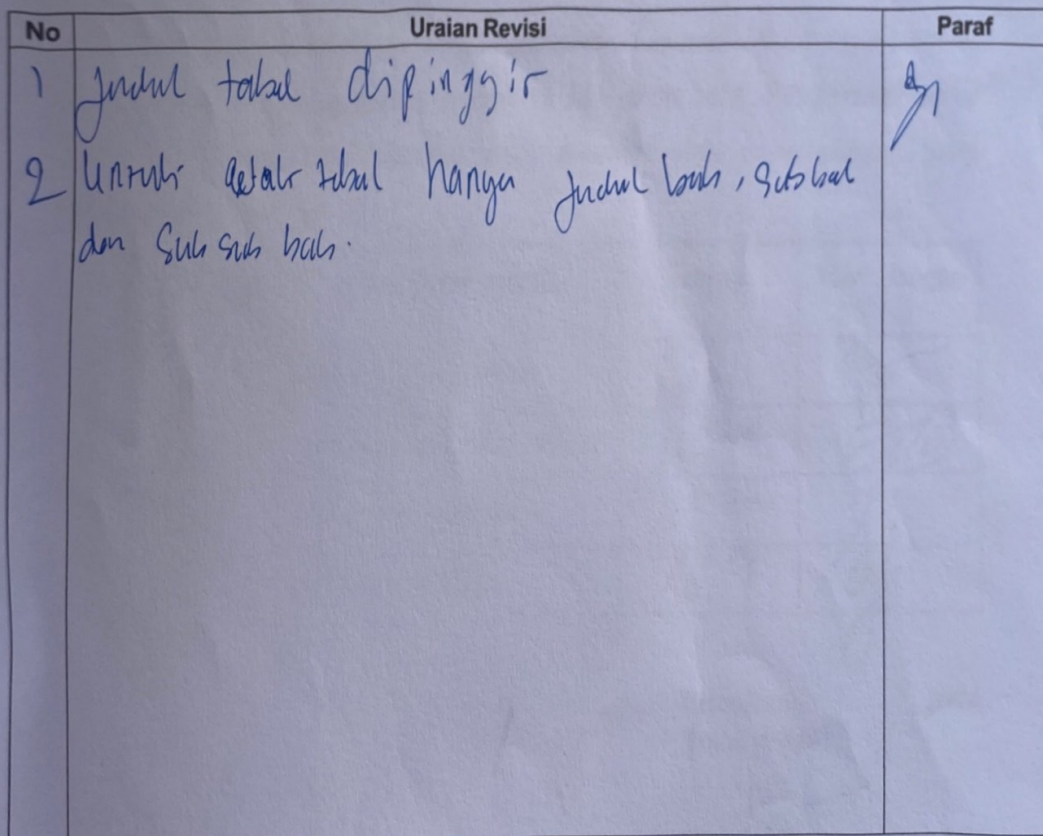 No Uraian Revisi Paraf
1 Judul tabel dipinggir
2 Untuk cetak tebal hanya Judul bab, Subbab
dan Sub sub bab.